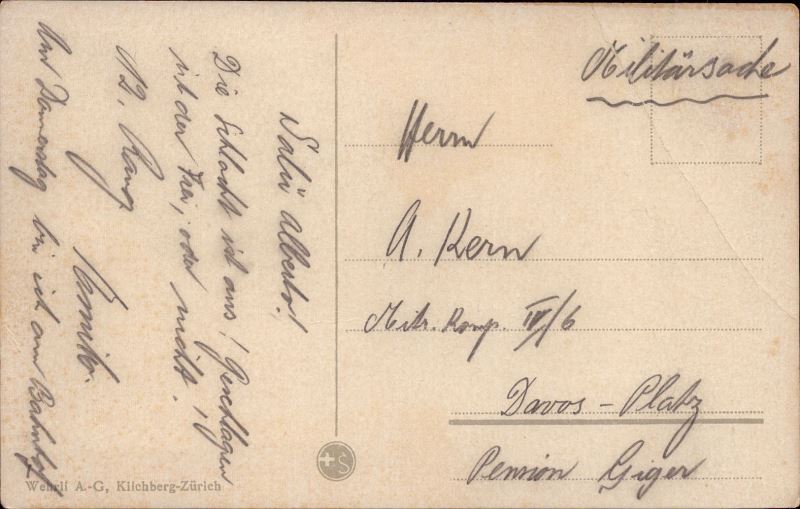 Militärsache
Herrn
A. Kern
Mitr. Komp. IV/6
Davos-Platz
Pension Giger
Salü Alberto!
Die Schlacht ist aus! Geschlagen
ist der Frei, oder nicht!
12. Rang
Am Donnerstag bin ich am Bahnhof
Wehrli A.-G, Kilchberg-Zürich
+S